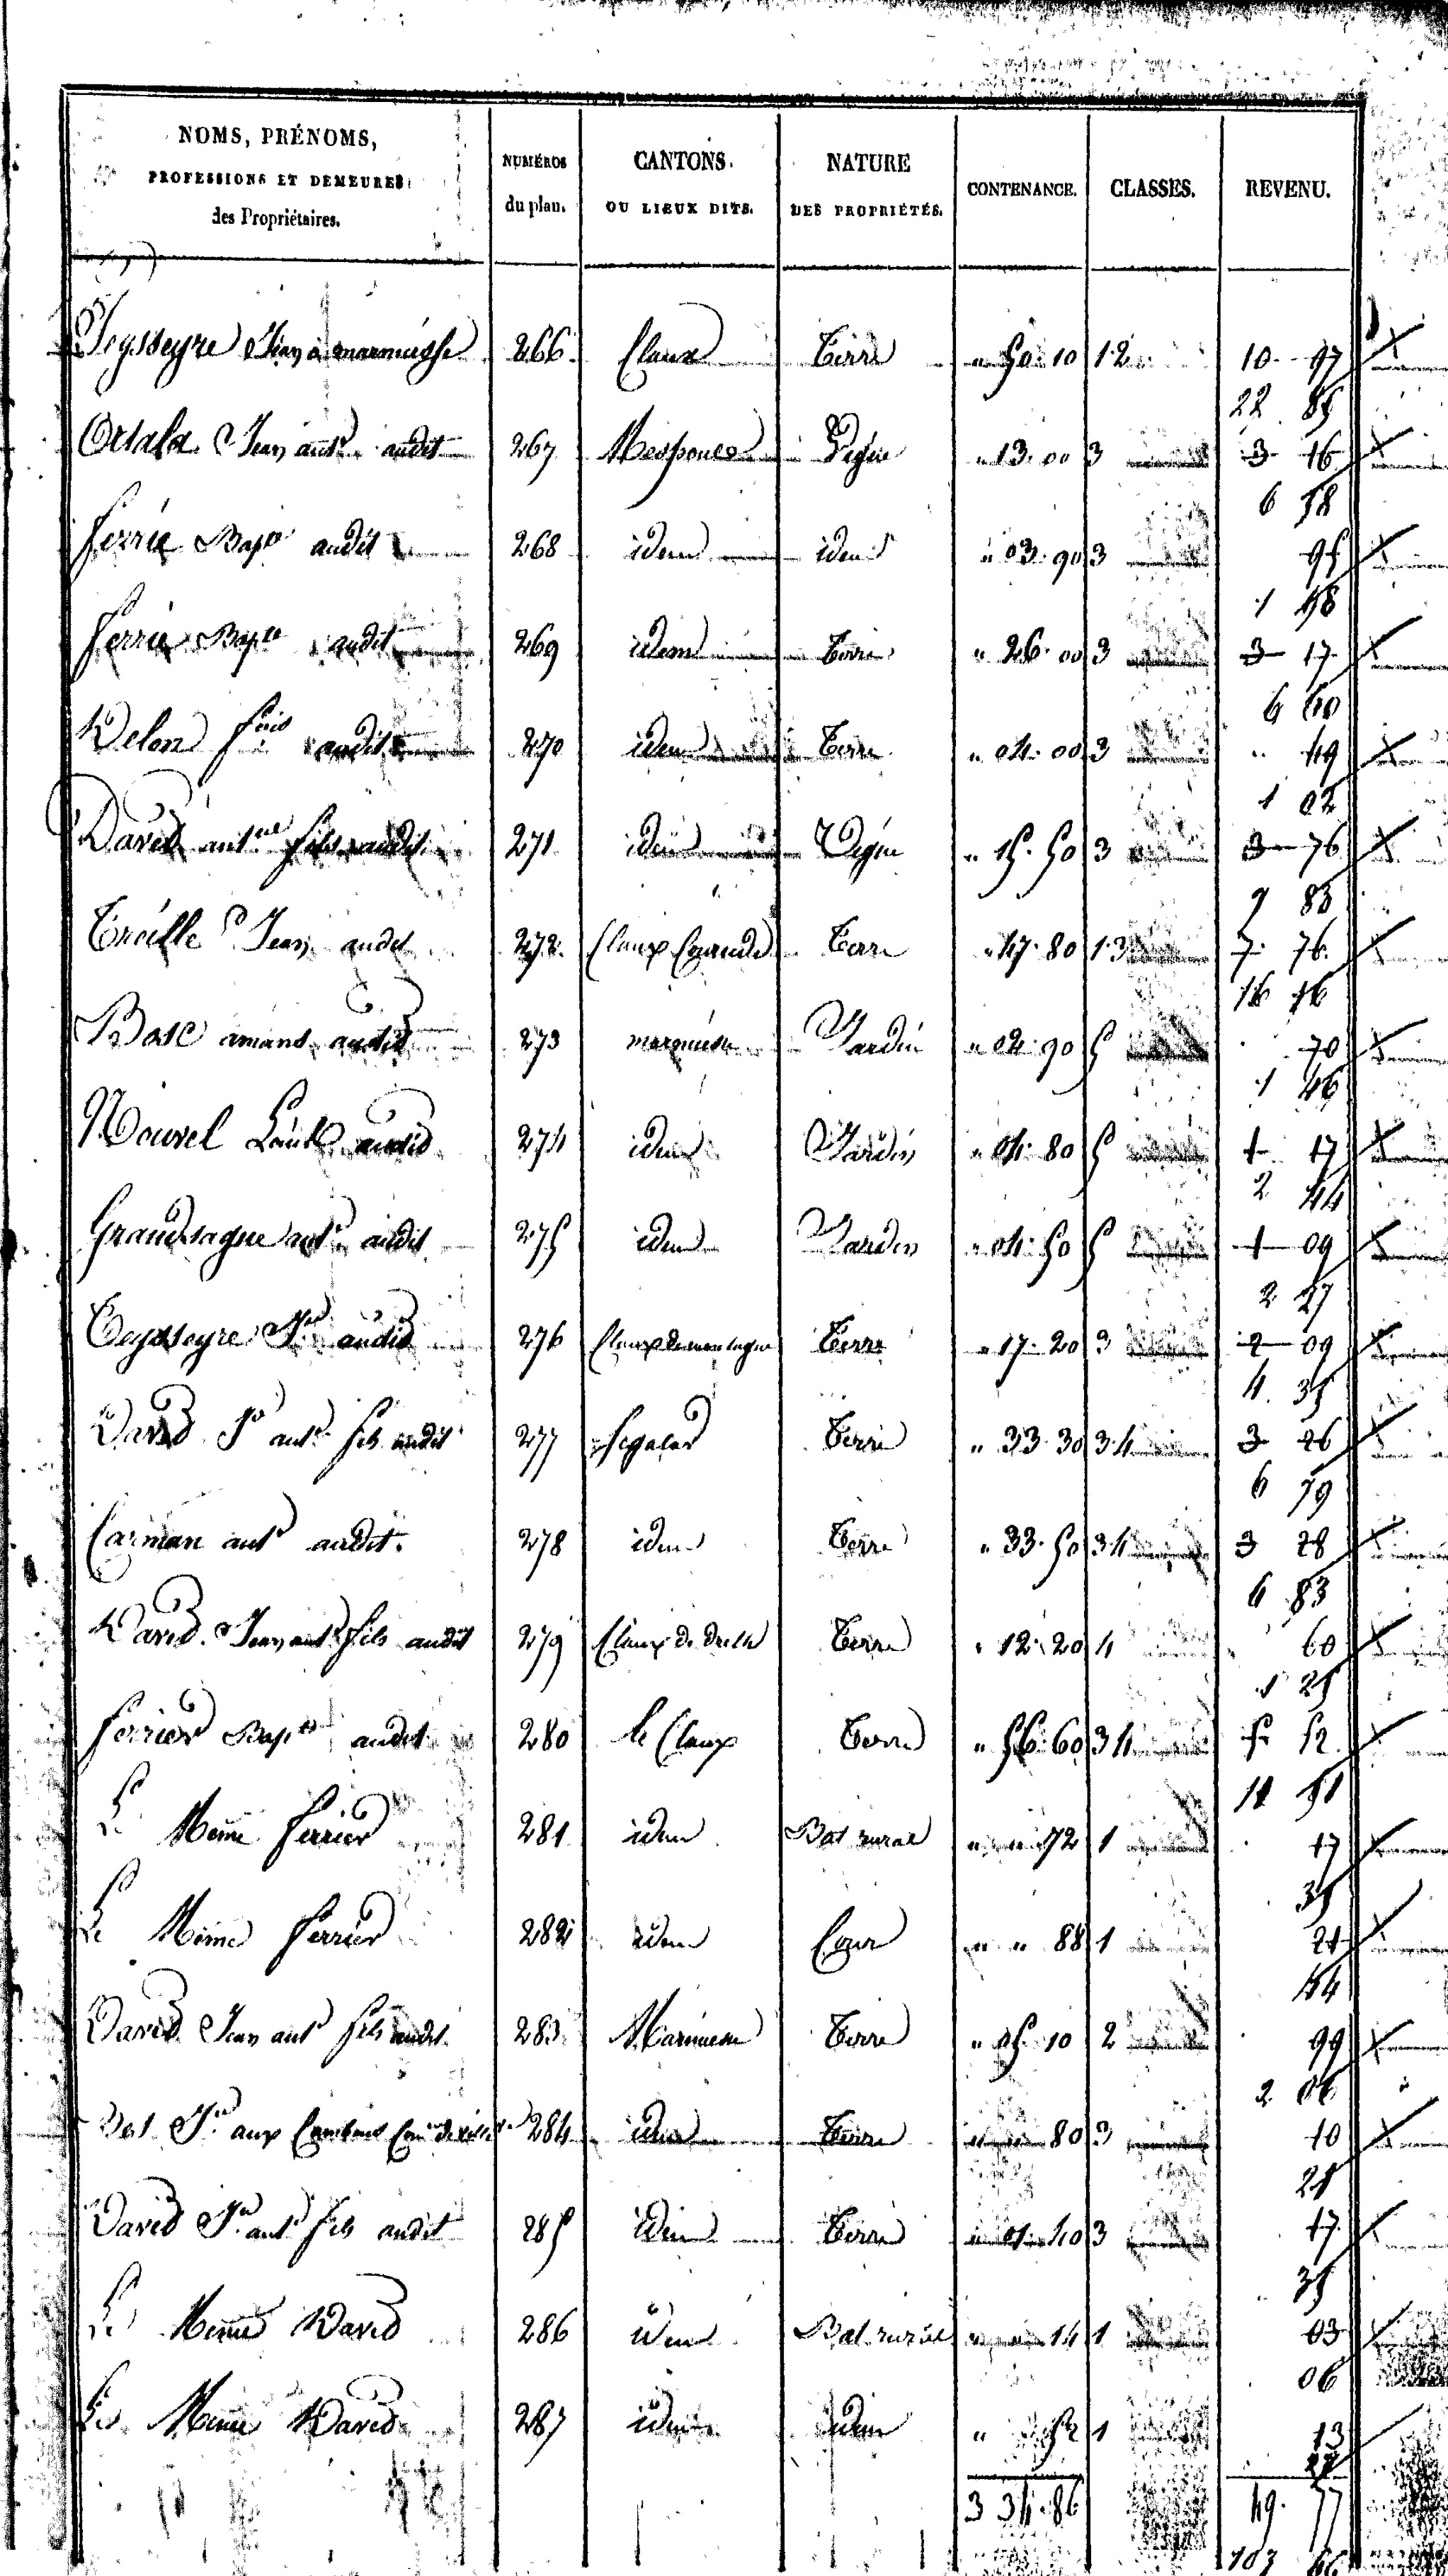 NOMS, PRÉNOMS, PROFESSIONS ET DEMEURES des Propriétaires. NUMÉROS du plan. CANTONS OU LIEUX DITS. NATURE DES PROPRIÉTÉS. CONTENANCE. CLASSES. REVENU.
Teysseyre Jean à 266 Claux Terre " 50. 10 1.2 10. 97
22 85
Jean ant.e audit 267 Vigne " 13. 00 3 3 16
6 58
Ferrié Bap.te audit 268 idem idem " 03. 90 3 95
1 98
Ferrié Bap.te audit 269 idem Terre " 26. 00 3 3 17
6 60
Delon f.ois audit 270 idem Terre " 04. 00 3 " 49
1 02
David ant.ne fils audit 271 idem Vigne " 15. 50 3 3 76
7 83
Treille Jean audit 272 Claux Grande Terre " 47. 80 1.3 7. 76
16 16
Bosc amans audit 273 Jardin " 02. 90 5 70
1 46
Nouvel audit 274 idem Jardin " 04. 80 5 1 17
2 44
Grandsagne ant.e audit 275 idem Jardin " 04. 50 5 1 09
2 27
Teysseyre J.n audit 276 Terre " 17. 20 3 2 09
4. 35
David J.n ant.e fils audit 277 Segalar Terre " 33. 30 3.4 3 26
6 79
Carman ant.e audit. 278 idem Terre " 33. 50 3.4 3 28
6 83
David Jean ant.e fils audit 279 Claux de Terre " 12. 20 4 60
1 25
Ferrier Bap.te audit 280 le Claux Terre " 56. 60 3 4 5 52
11 51
Le Même Ferrier 281 idem Bat rural " " 72 1 17
35
Le Même Ferrier 282 idem Cour " " 88 1 21
44
David Jean ant.e fils audit 283 Terre " 05. 10 2 99
2 06
J.n aux 284 idem Terre " " 80 3 10
21
David J.n ant.e fils audit 285 idem Terre " 01. 40 3 17
35
Le Même David 286 idem Bat. rural " " 14 1 03
06
Le Même David 287 idem idem " 52 1 13
27
3 34. 86 49. 77
103